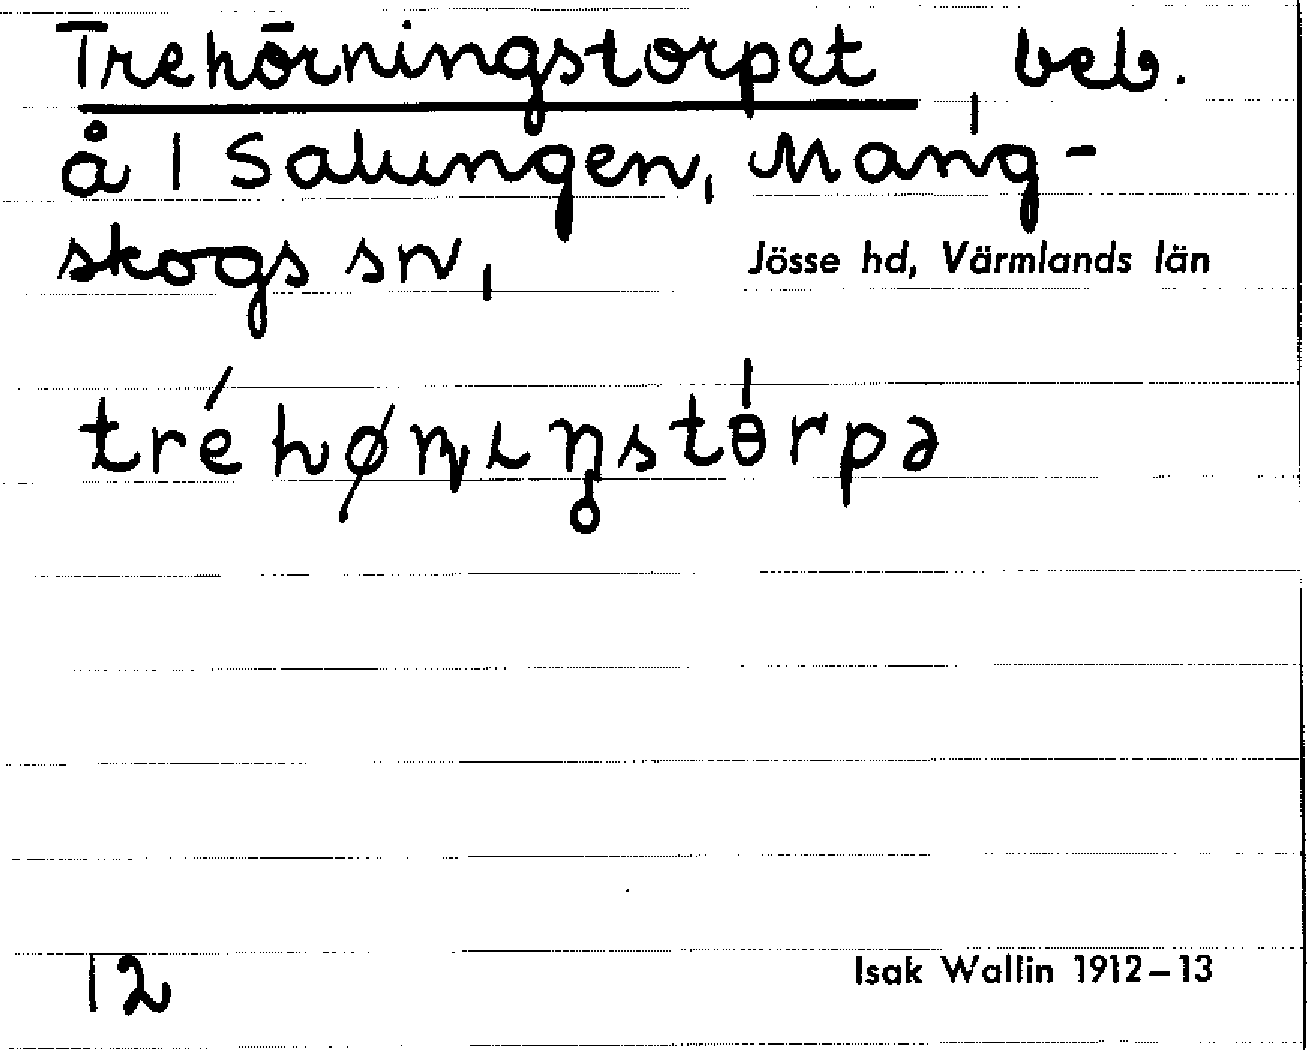 Trehörningstorpet, beb.
å 1 Salungen, Mang-
skogs sn, Jösse hd, Värmlands län
tréhøɳɩŋstɵ́rpə
12 Isak Wallin 1912–13